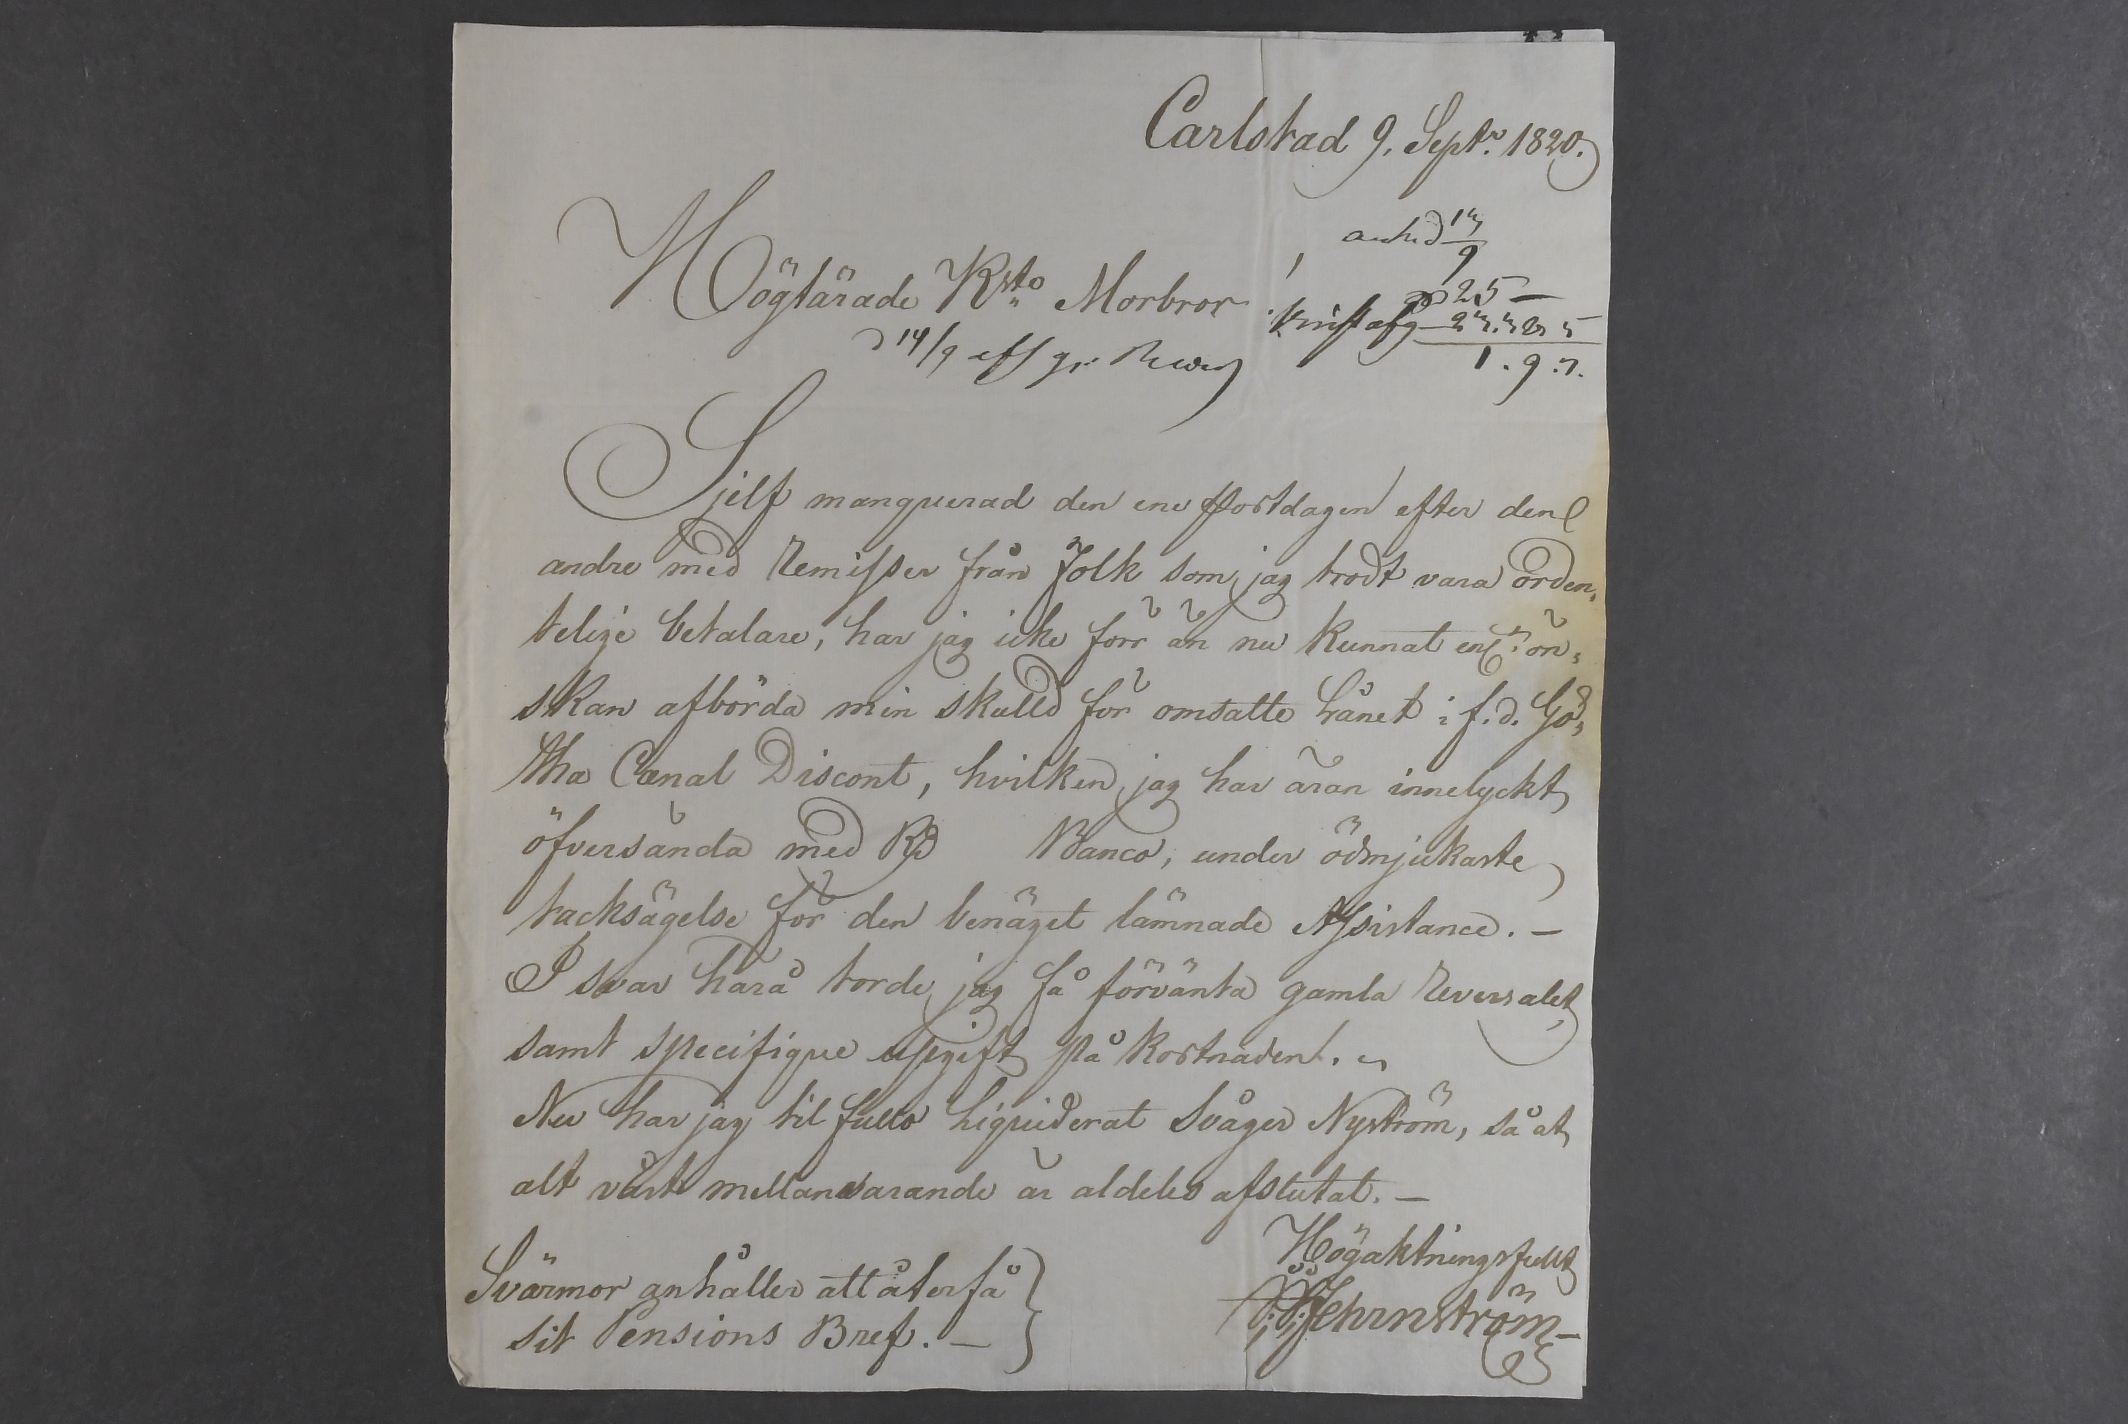 Carlstad 9. Sept:r 1820.
ank d 13/9
25 –
Höglärade K:sta Morbror!
1. 9. 7.
Sjelf manquerad den ene Postdagen efter den
andre med Remisser från Folk som jag trodt vara orden,
telige betalare, har jag icke förr än nu kunnat en:t ön,
skan afbörda min skulld för omsatte Lånet i f. d. Gö,
tha Canal Discont, hvilken jag har äran innelyckt
öfversända med Rd Banco, under ödmjukaste
tacksägelse för den benäget lämnade Assistance. –
I svar härå torde jag få förvänta gamla Reversalet,
samt specifique upgift på kostnaden. –
Nu har jag til fullo Liquiderat Svåger Nyström, så at
alt vårt mellanvarande är aldeles afslutat. –
Högaktningsfullt
Svärmor anhåller att återfå
sit Pensions Bref. –
Fehrnström